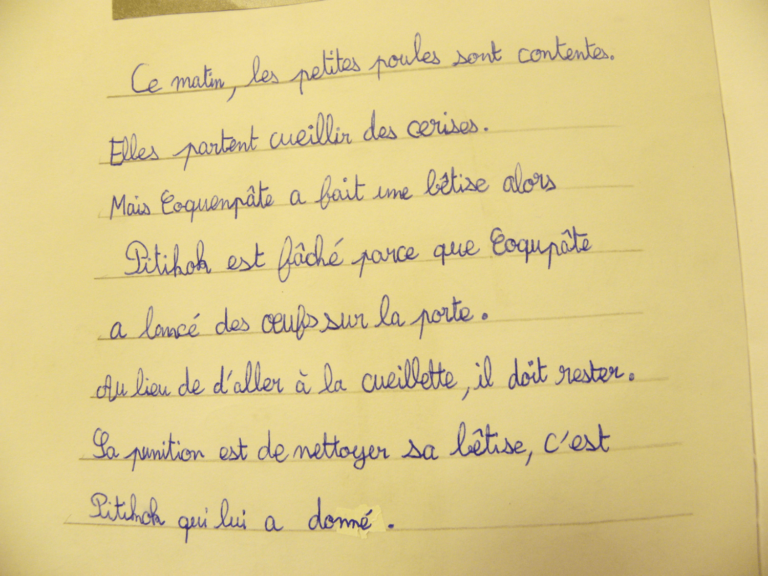 Ce matin, les petites poules sont contentes.
Elles partent cueillir des cerises.
Mais Coquenpâte a fait une bêtise alors
Pitihok est fâché parce que Coqupâte
a lancé des œufs sur la porte.
Au lieu de d'aller à la cueillette, il doit rester.
Sa punition est de nettoyer sa bêtise, c'est
Pitihok qui lui a donné.